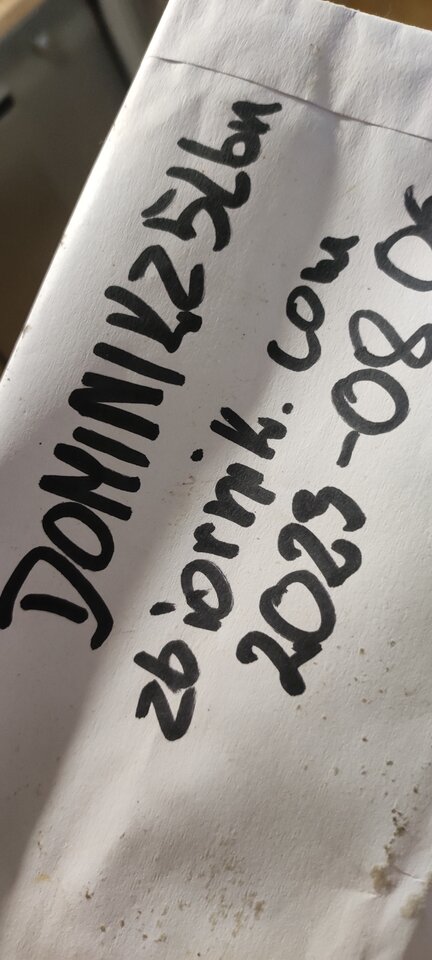 DOMINIKZ5Lbn
zbiornik.com
2023-08